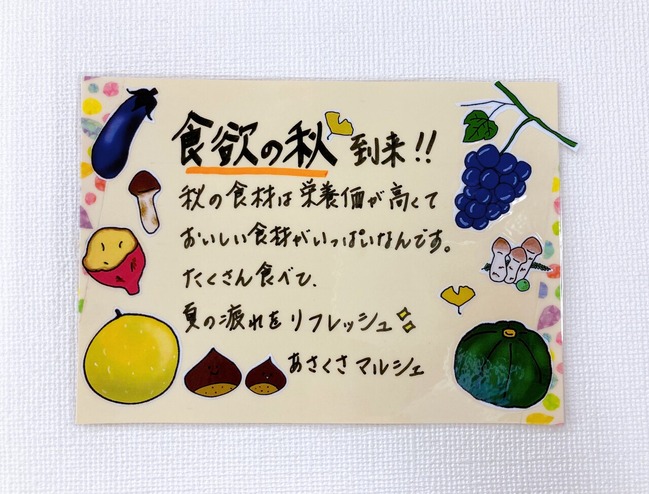 食欲の秋 到来!!
秋の食材は栄養価が高くて
おいしい食材がいっぱいなんです。
たくさん食べて、
夏の疲れをリフレッシュ
あさくさマルシェ